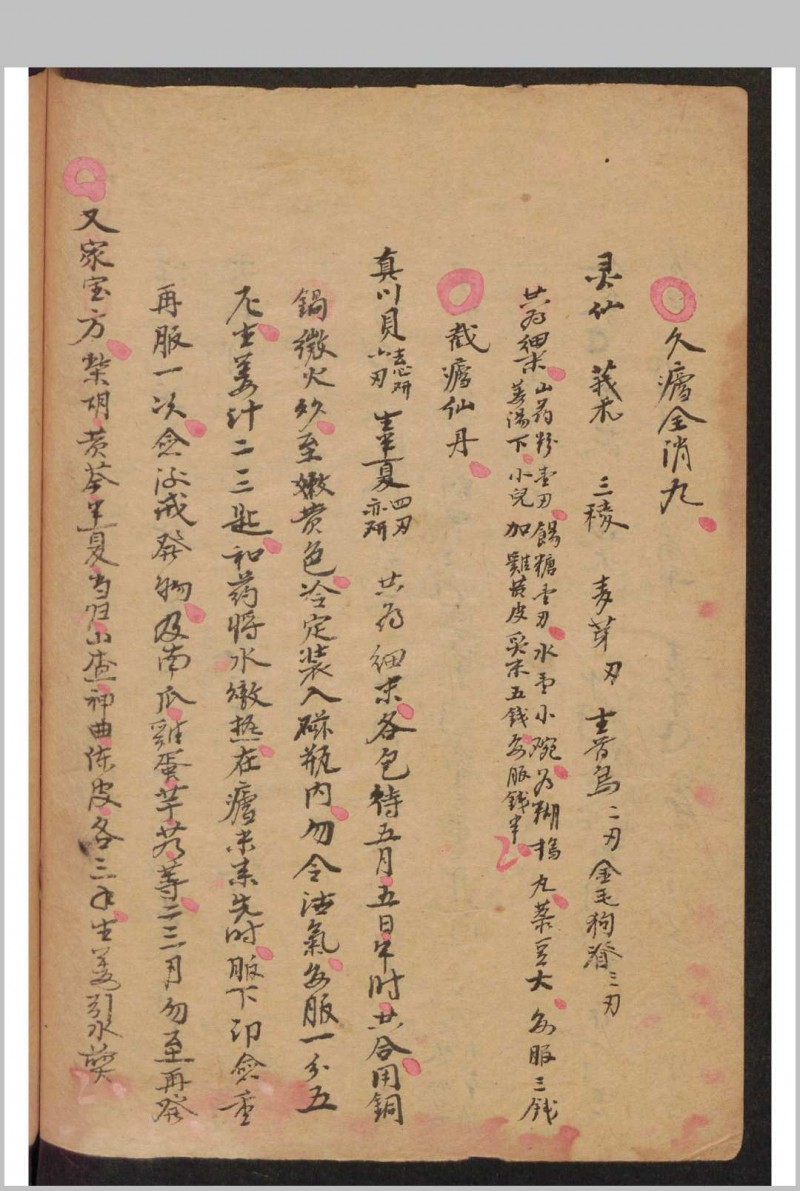 久瘧全消丸
灵仙 莪朮 三稜 麦芽刃 生首烏二刃 金毛狗脊三刃
共为細末 山药粉壹刃 餳糖壹刃 水壹小碗 为糊搗丸 菉豆大 每服三錢
姜湯下 小兒加雞𦝫皮炙末五錢 每服錢半
截瘧仙丹
真川貝六刃去心研 生半夏四刃亦研 共为細末各包待五月五日午时共合用銅
鍋微火炒至嫩黄色冷定装入磁瓶内勿令洩氣每服一分五
厘生姜汁二三匙和药将水燉热在瘧未来先时服下即愈重
再服一次愈后戒發物及南瓜雞蛋芋芳等二三月勿至再發
又家宝方柴胡黄芩半夏当归山查神曲陈皮各三千生姜引水煎